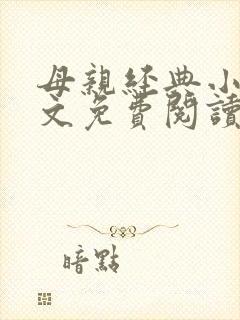 母親經典小
文免費閱讀
暗點